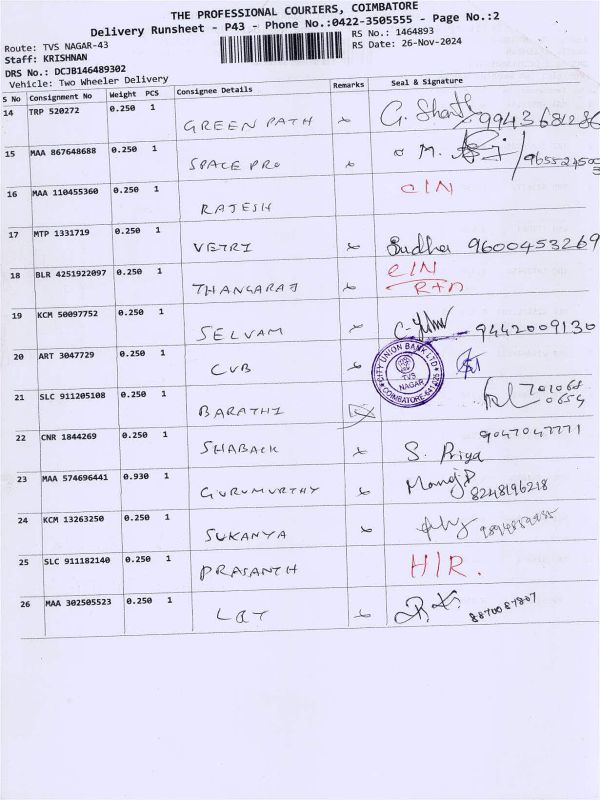 THE PROFESSIONAL COURIERS, COIMBATORE
Delivery Runsheet - P43 - Phone No.:0422-3505555 - Page No.:2
Route: TVS NAGAR-43
RS No.: 1464893
Staff: KRISHNAN
RS Date: 26-Nov-2024
DRS No.: DCJB146489302
Vehicle: Two Wheeler Delivery
S No Consignment No Weight PCS Consignee Details Remarks Seal & Signature
14 TRP 520272 0.250 1 GREEN PATH G. Shanthi 9943681286
15 MAA 867648688 0.250 1 SPACE PRO M.
16 MAA 110455360 0.250 1 RAJESH CIN
17 MTP 1331719 0.250 1 VETRI Sudha 9600453269
18 BLR 4251922097 0.250 1 THANGARAJ CIN
19 KCM 50097752 0.250 1 SELVAM 9442009130
20 ART 3047729 0.250 1 CUB CITY UNION BANK LTD TVS NAGAR COIMBATORE
21 SLC 911205108 0.250 1 BARATHI
22 CNR 1844269 0.250 1 SHABACK S. Priya 9047047771
23 MAA 574696441 0.930 1 GURUMURTHY Manoj P 8248196218
24 KCM 13263250 0.250 1 SUKANYA
25 SLC 911182140 0.250 1 PRASANTH H/R.
26 MAA 302505523 0.250 1 L&T 8870087807